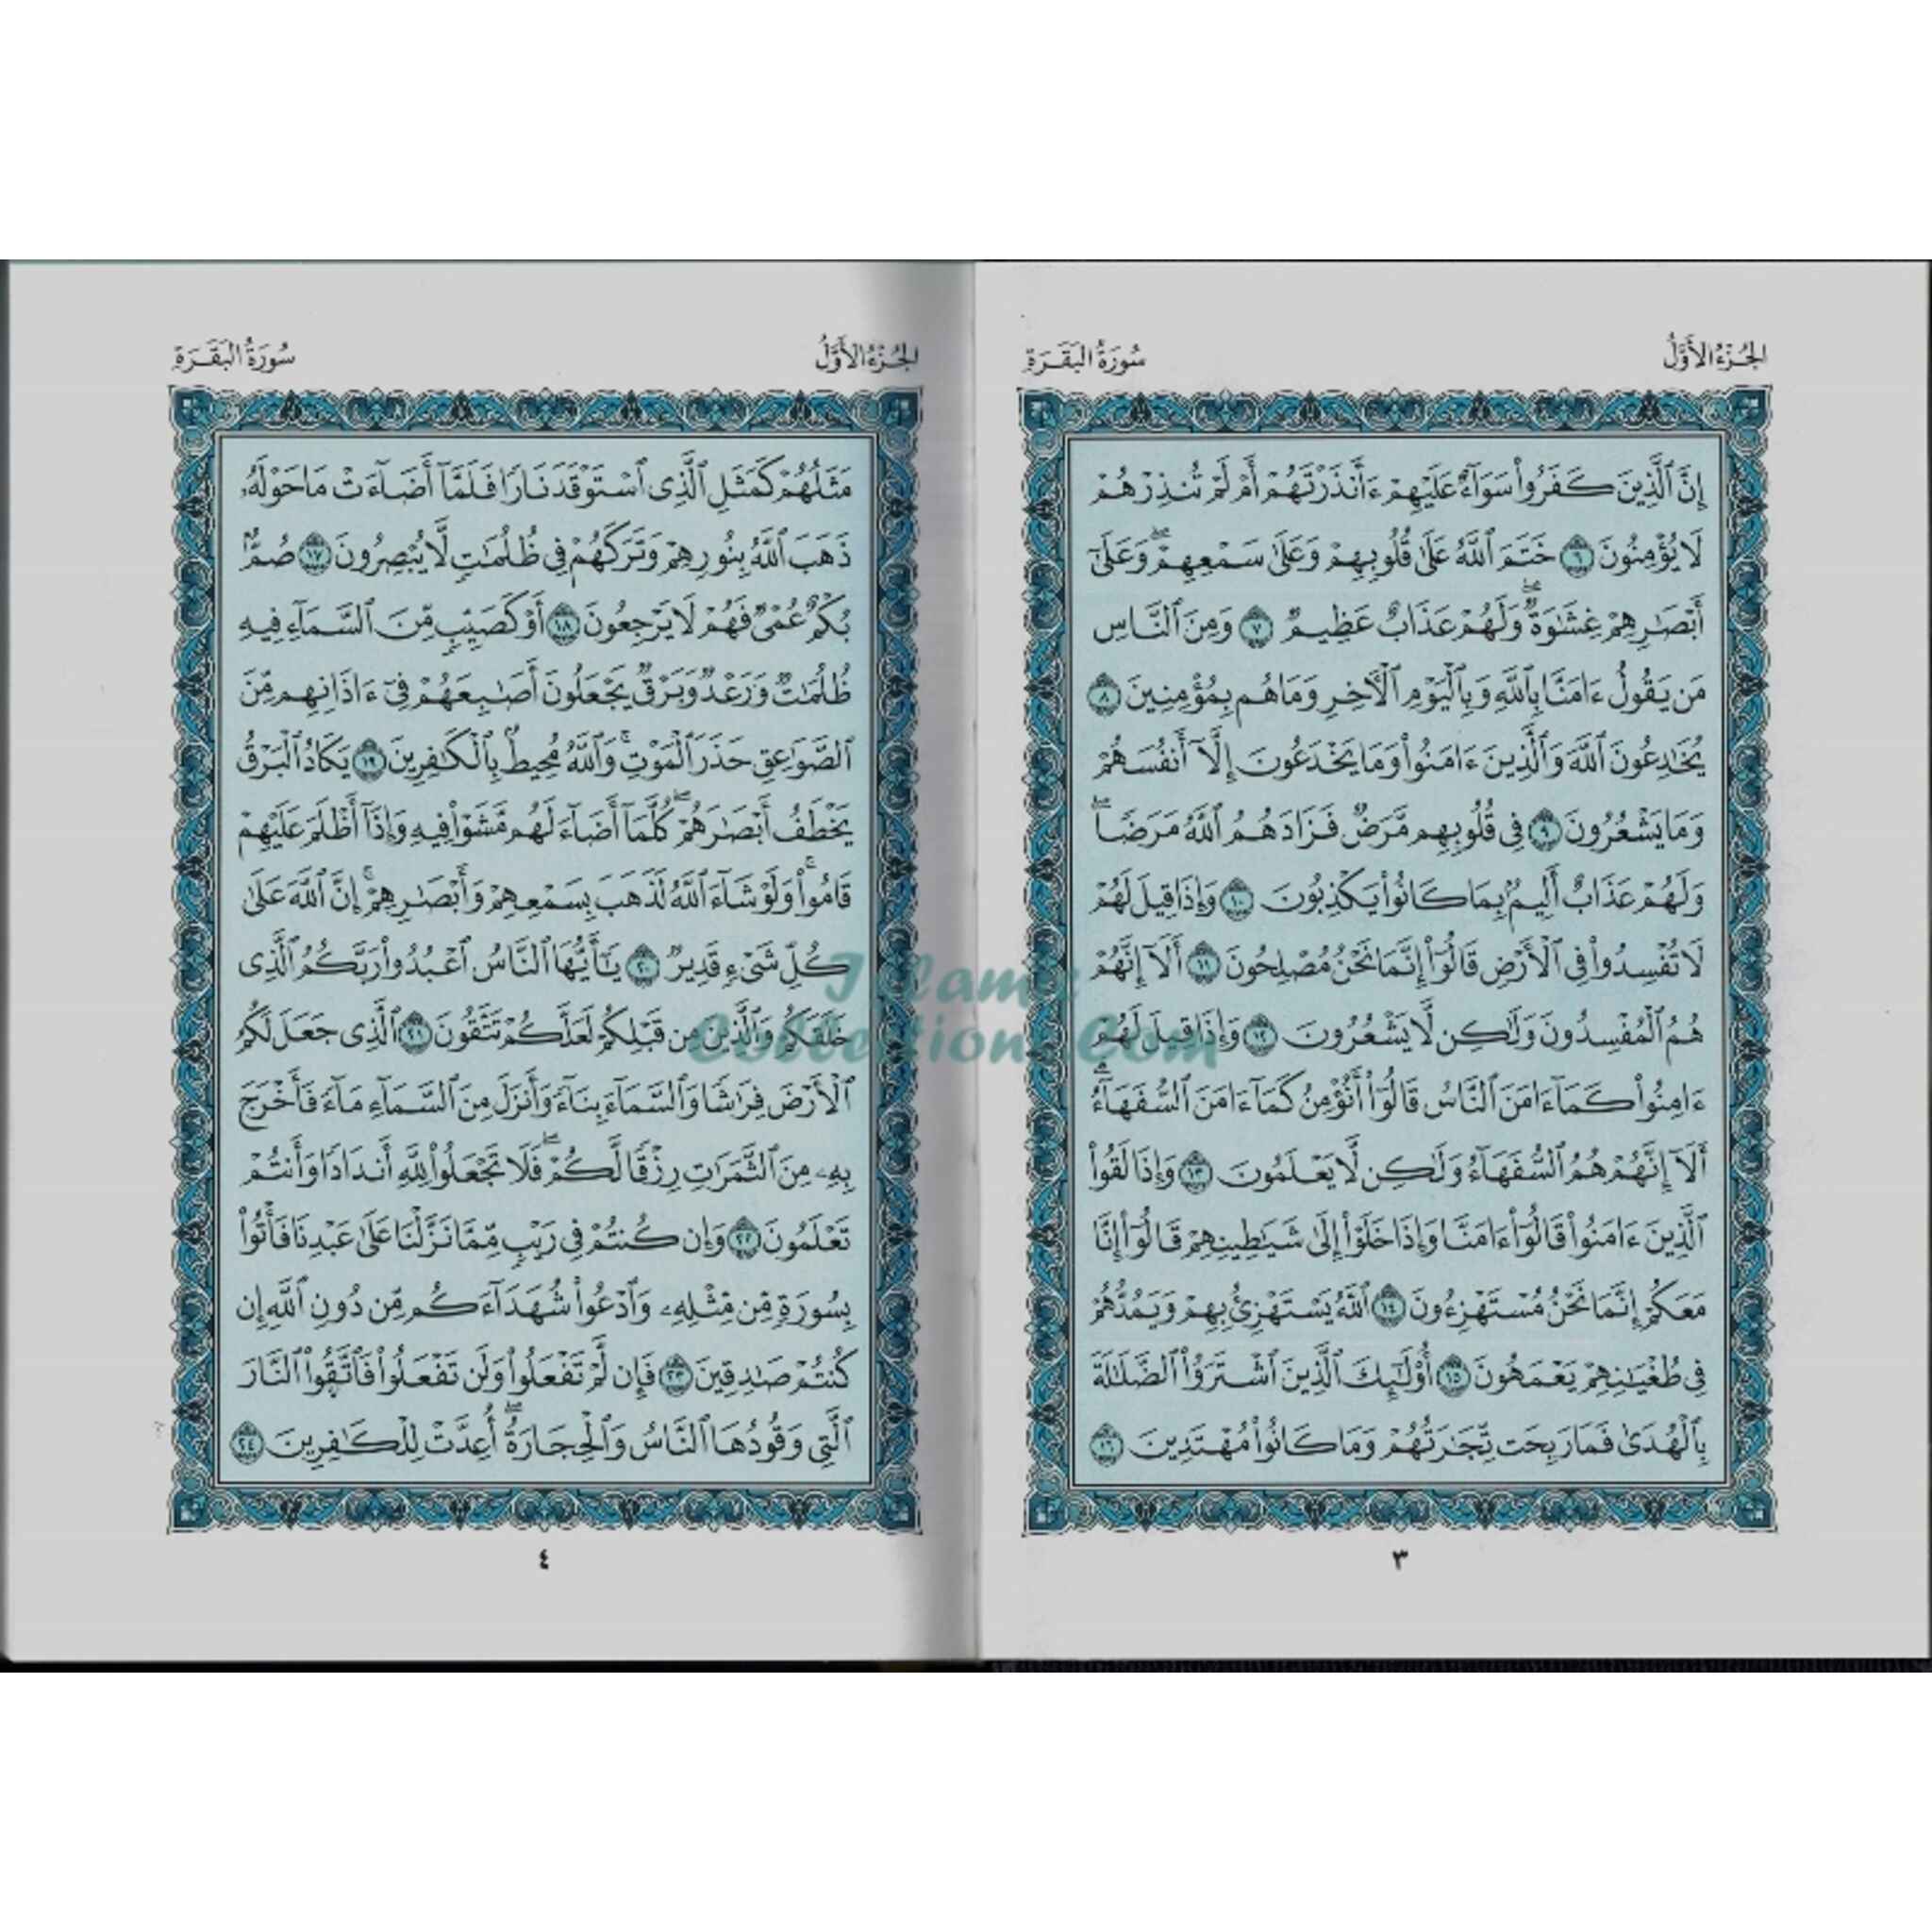 الجُزءُ الأَوَّلُ
سُورَةُ البَقَرَةِ
إِنَّ ٱلَّذِينَ كَفَرُوا۟ سَوَآءٌ عَلَيْهِمْ ءَأَنذَرْتَهُمْ أَمْ لَمْ تُنذِرْهُمْ
لَا يُؤْمِنُونَ ٦ خَتَمَ ٱللَّهُ عَلَىٰ قُلُوبِهِمْ وَعَلَىٰ سَمْعِهِمْ ۖ وَعَلَىٰٓ
أَبْصَـٰرِهِمْ غِشَـٰوَةٌ ۖ وَلَهُمْ عَذَابٌ عَظِيمٌ ٧ وَمِنَ ٱلنَّاسِ
مَن يَقُولُ ءَامَنَّا بِٱللَّهِ وَبِٱلْيَوْمِ ٱلْـَٔاخِرِ وَمَا هُم بِمُؤْمِنِينَ ٨
يُخَـٰدِعُونَ ٱللَّهَ وَٱلَّذِينَ ءَامَنُوا۟ وَمَا يَخْدَعُونَ إِلَّآ أَنفُسَهُمْ
وَمَا يَشْعُرُونَ ٩ فِى قُلُوبِهِم مَّرَضٌ فَزَادَهُمُ ٱللَّهُ مَرَضًا ۖ
وَلَهُمْ عَذَابٌ أَلِيمٌۢ بِمَا كَانُوا۟ يَكْذِبُونَ ١٠ وَإِذَا قِيلَ لَهُمْ
لَا تُفْسِدُوا۟ فِى ٱلْأَرْضِ قَالُوٓا۟ إِنَّمَا نَحْنُ مُصْلِحُونَ ١١ أَلَآ إِنَّهُمْ
هُمُ ٱلْمُفْسِدُونَ وَلَـٰكِن لَّا يَشْعُرُونَ ١٢ وَإِذَا قِيلَ لَهُمْ
ءَامِنُوا۟ كَمَآ ءَامَنَ ٱلنَّاسُ قَالُوٓا۟ أَنُؤْمِنُ كَمَآ ءَامَنَ ٱلسُّفَهَآءُ ۗ
أَلَآ إِنَّهُمْ هُمُ ٱلسُّفَهَآءُ وَلَـٰكِن لَّا يَعْلَمُونَ ١٣ وَإِذَا لَقُوا۟
ٱلَّذِينَ ءَامَنُوا۟ قَالُوٓا۟ ءَامَنَّا وَإِذَا خَلَوْا۟ إِلَىٰ شَيَـٰطِينِهِمْ قَالُوٓا۟ إِنَّا
مَعَكُمْ إِنَّمَا نَحْنُ مُسْتَهْزِءُونَ ١٤ ٱللَّهُ يَسْتَهْزِئُ بِهِمْ وَيَمُدُّهُمْ
فِى طُغْيَـٰنِهِمْ يَعْمَهُونَ ١٥ أُو۟لَـٰٓئِكَ ٱلَّذِينَ ٱشْتَرَوُا۟ ٱلضَّلَـٰلَةَ
بِٱلْهُدَىٰ فَمَا رَبِحَت تِّجَـٰرَتُهُمْ وَمَا كَانُوا۟ مُهْتَدِينَ ١٦
٣
الجُزءُ الأَوَّلُ
سُورَةُ البَقَرَةِ
مَثَلُهُمْ كَمَثَلِ ٱلَّذِى ٱسْتَوْقَدَ نَارًا فَلَمَّآ أَضَآءَتْ مَا حَوْلَهُۥ
ذَهَبَ ٱللَّهُ بِنُورِهِمْ وَتَرَكَهُمْ فِى ظُلُمَـٰتٍ لَّا يُبْصِرُونَ ١٧ صُمٌّۢ
بُكْمٌ عُمْىٌ فَهُمْ لَا يَرْجِعُونَ ١٨ أَوْ كَصَيِّبٍ مِّنَ ٱلسَّمَآءِ فِيهِ
ظُلُمَـٰتٌ وَرَعْدٌ وَبَرْقٌ يَجْعَلُونَ أَصَـٰبِعَهُمْ فِىٓ ءَاذَانِهِم مِّنَ
ٱلصَّوَٰعِقِ حَذَرَ ٱلْمَوْتِ ۚ وَٱللَّهُ مُحِيطٌۢ بِٱلْكَـٰفِرِينَ ١٩ يَكَادُ ٱلْبَرْقُ
يَخْطَفُ أَبْصَـٰرَهُمْ ۖ كُلَّمَآ أَضَآءَ لَهُم مَّشَوْا۟ فِيهِ وَإِذَآ أَظْلَمَ عَلَيْهِمْ
قَامُوا۟ ۚ وَلَوْ شَآءَ ٱللَّهُ لَذَهَبَ بِسَمْعِهِمْ وَأَبْصَـٰرِهِمْ ۚ إِنَّ ٱللَّهَ عَلَىٰ
كُلِّ شَىْءٍ قَدِيرٌ ٢٠ يَـٰٓأَيُّهَا ٱلنَّاسُ ٱعْبُدُوا۟ رَبَّكُمُ ٱلَّذِى
خَلَقَكُمْ وَٱلَّذِينَ مِن قَبْلِكُمْ لَعَلَّكُمْ تَتَّقُونَ ٢١ ٱلَّذِى جَعَلَ لَكُمُ
ٱلْأَرْضَ فِرَٰشًا وَٱلسَّمَآءَ بِنَآءً وَأَنزَلَ مِنَ ٱلسَّمَآءِ مَآءً فَأَخْرَجَ
بِهِۦ مِنَ ٱلثَّمَرَٰتِ رِزْقًا لَّكُمْ ۖ فَلَا تَجْعَلُوا۟ لِلَّهِ أَندَادًا وَأَنتُمْ
تَعْلَمُونَ ٢٢ وَإِن كُنتُمْ فِى رَيْبٍ مِّمَّا نَزَّلْنَا عَلَىٰ عَبْدِنَا فَأْتُوا۟
بِسُورَةٍ مِّن مِّثْلِهِۦ وَٱدْعُوا۟ شُهَدَآءَكُم مِّن دُونِ ٱللَّهِ إِن
كُنتُمْ صَـٰدِقِينَ ٢٣ فَإِن لَّمْ تَفْعَلُوا۟ وَلَن تَفْعَلُوا۟ فَٱتَّقُوا۟ ٱلنَّارَ
ٱلَّتِى وَقُودُهَا ٱلنَّاسُ وَٱلْحِجَارَةُ ۖ أُعِدَّتْ لِلْكَـٰفِرِينَ ٢٤
٤
Islamic
Collections.Com